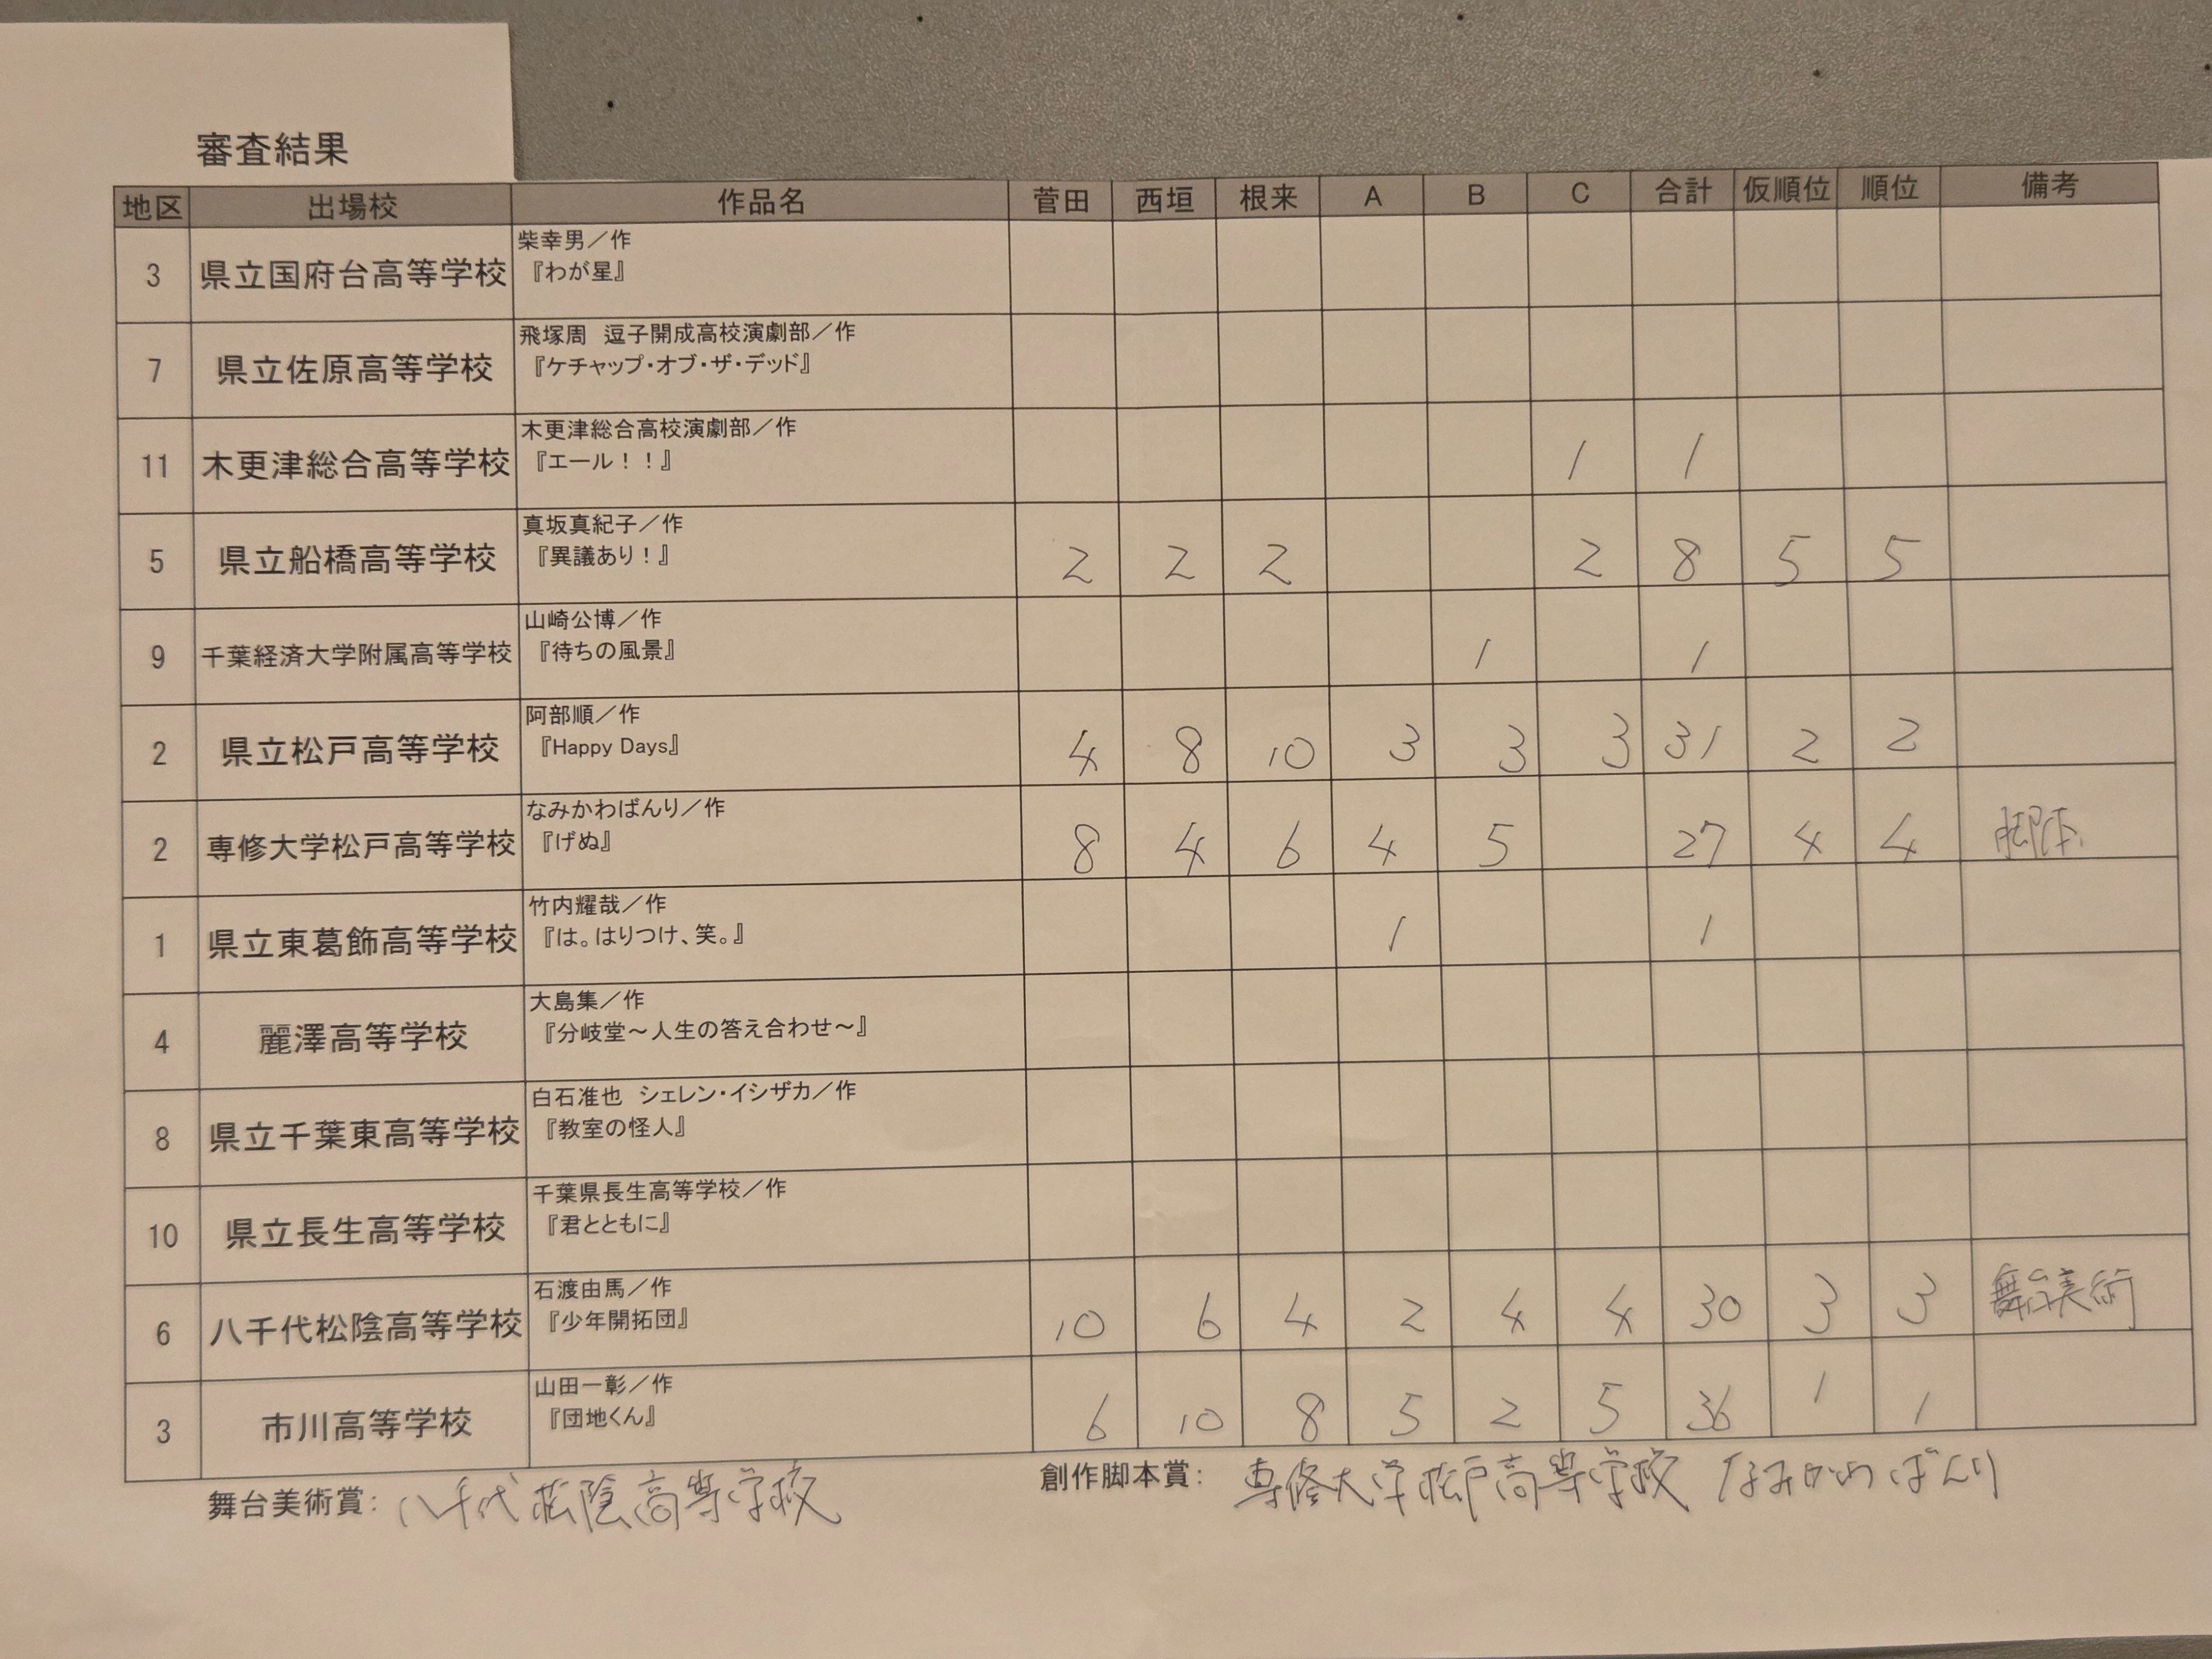 審査結果
地区 出場校 作品名 菅田 西垣 根来 A B C 合計 仮順位 順位 備考
柴幸男／作
3 県立国府台高等学校 『わが星』
飛塚周　逗子開成高校演劇部／作
7 県立佐原高等学校 『ケチャップ・オブ・ザ・デッド』
木更津総合高校演劇部／作
11 木更津総合高等学校 『エール！！』 1 1
真坂真紀子／作
5 県立船橋高等学校 『異議あり！』 2 2 2 2 8 5 5
山崎公博／作
9 千葉経済大学附属高等学校 『待ちの風景』 1 1
阿部順／作
2 県立松戸高等学校 『Happy Days』 4 8 10 3 3 3 31 2 2
なみかわばんり／作
2 専修大学松戸高等学校 『げぬ』 8 4 6 4 5 27 4 4 脚本
竹内耀哉／作
1 県立東葛飾高等学校 『は。はりつけ、笑。』 1 1
大島集／作
4 麗澤高等学校 『分岐堂～人生の答え合わせ～』
白石准也　シェレン・イシザカ／作
8 県立千葉東高等学校 『教室の怪人』
千葉県長生高等学校／作
10 県立長生高等学校 『君とともに』
石渡由馬／作
6 八千代松陰高等学校 『少年開拓団』 10 6 4 2 4 4 30 3 3 舞台美術
山田一彰／作
3 市川高等学校 『団地くん』 6 10 8 5 2 5 36 1 1
舞台美術賞： 八千代松陰高等学校
創作脚本賞： 専修大学松戸高等学校 なみかわばんり